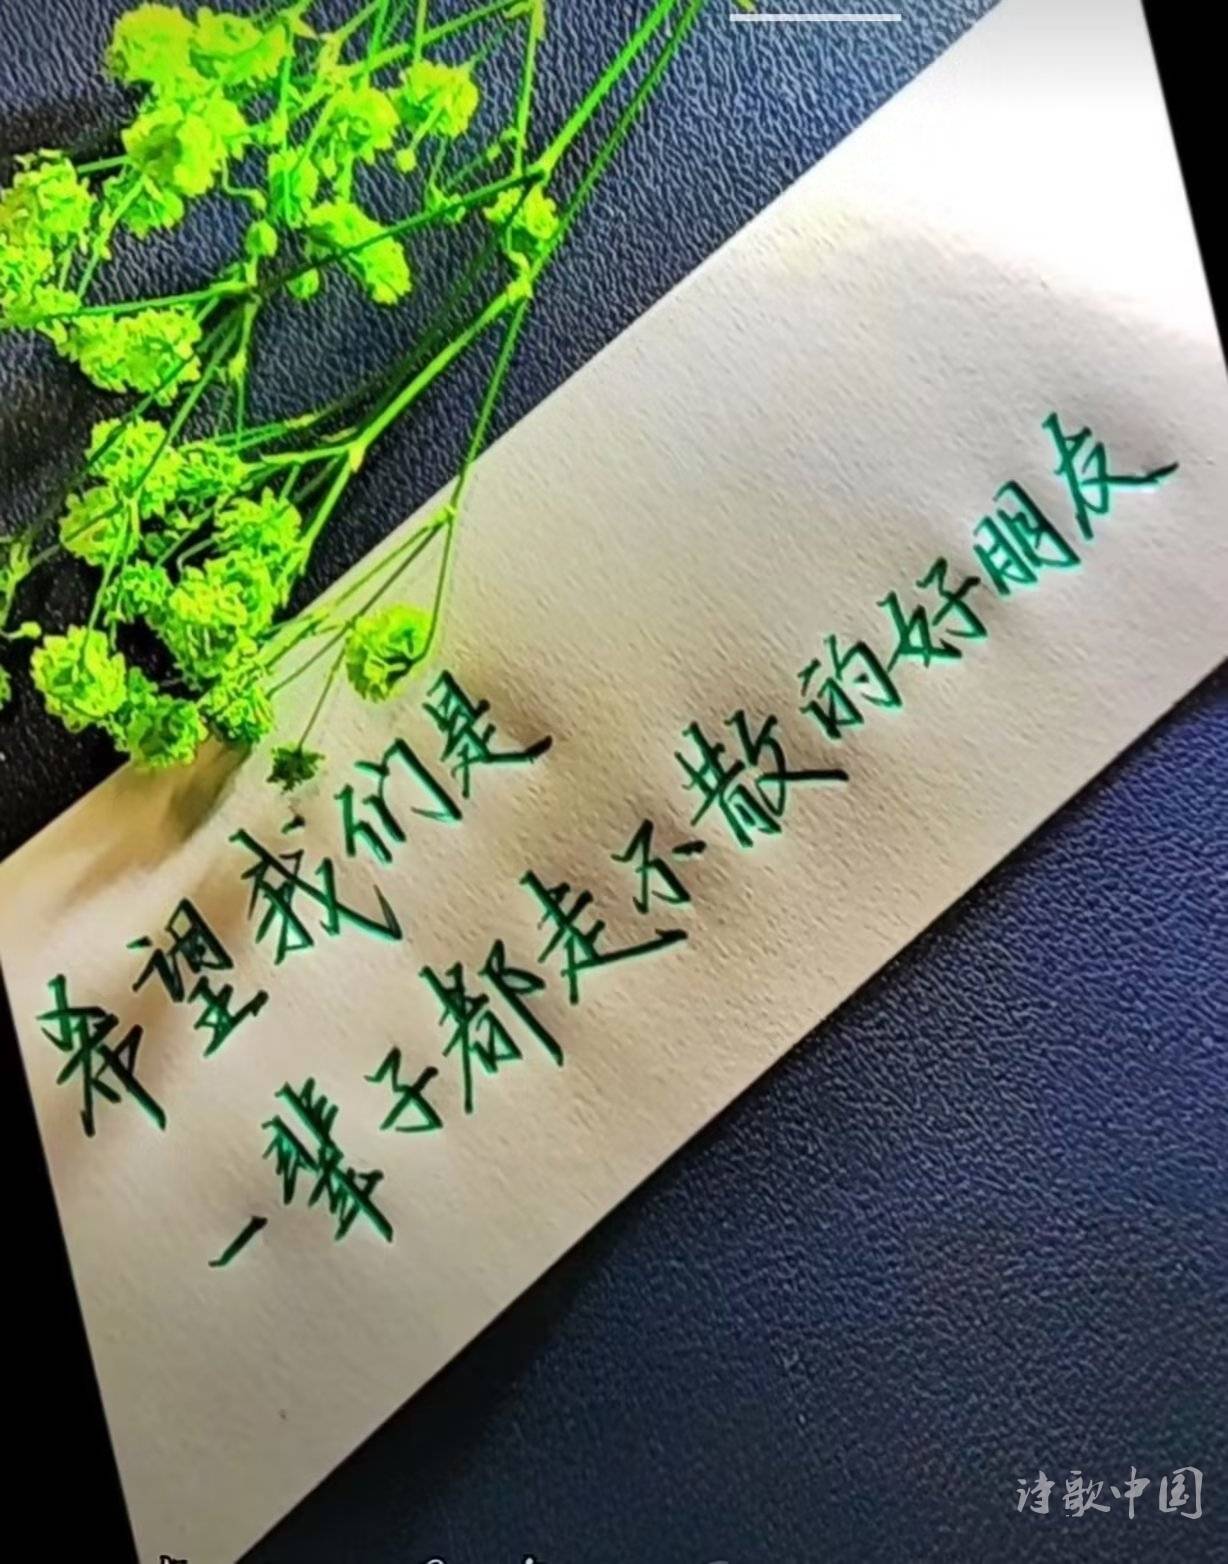 希望我们是
一辈子都走不散的好朋友
诗歌中国